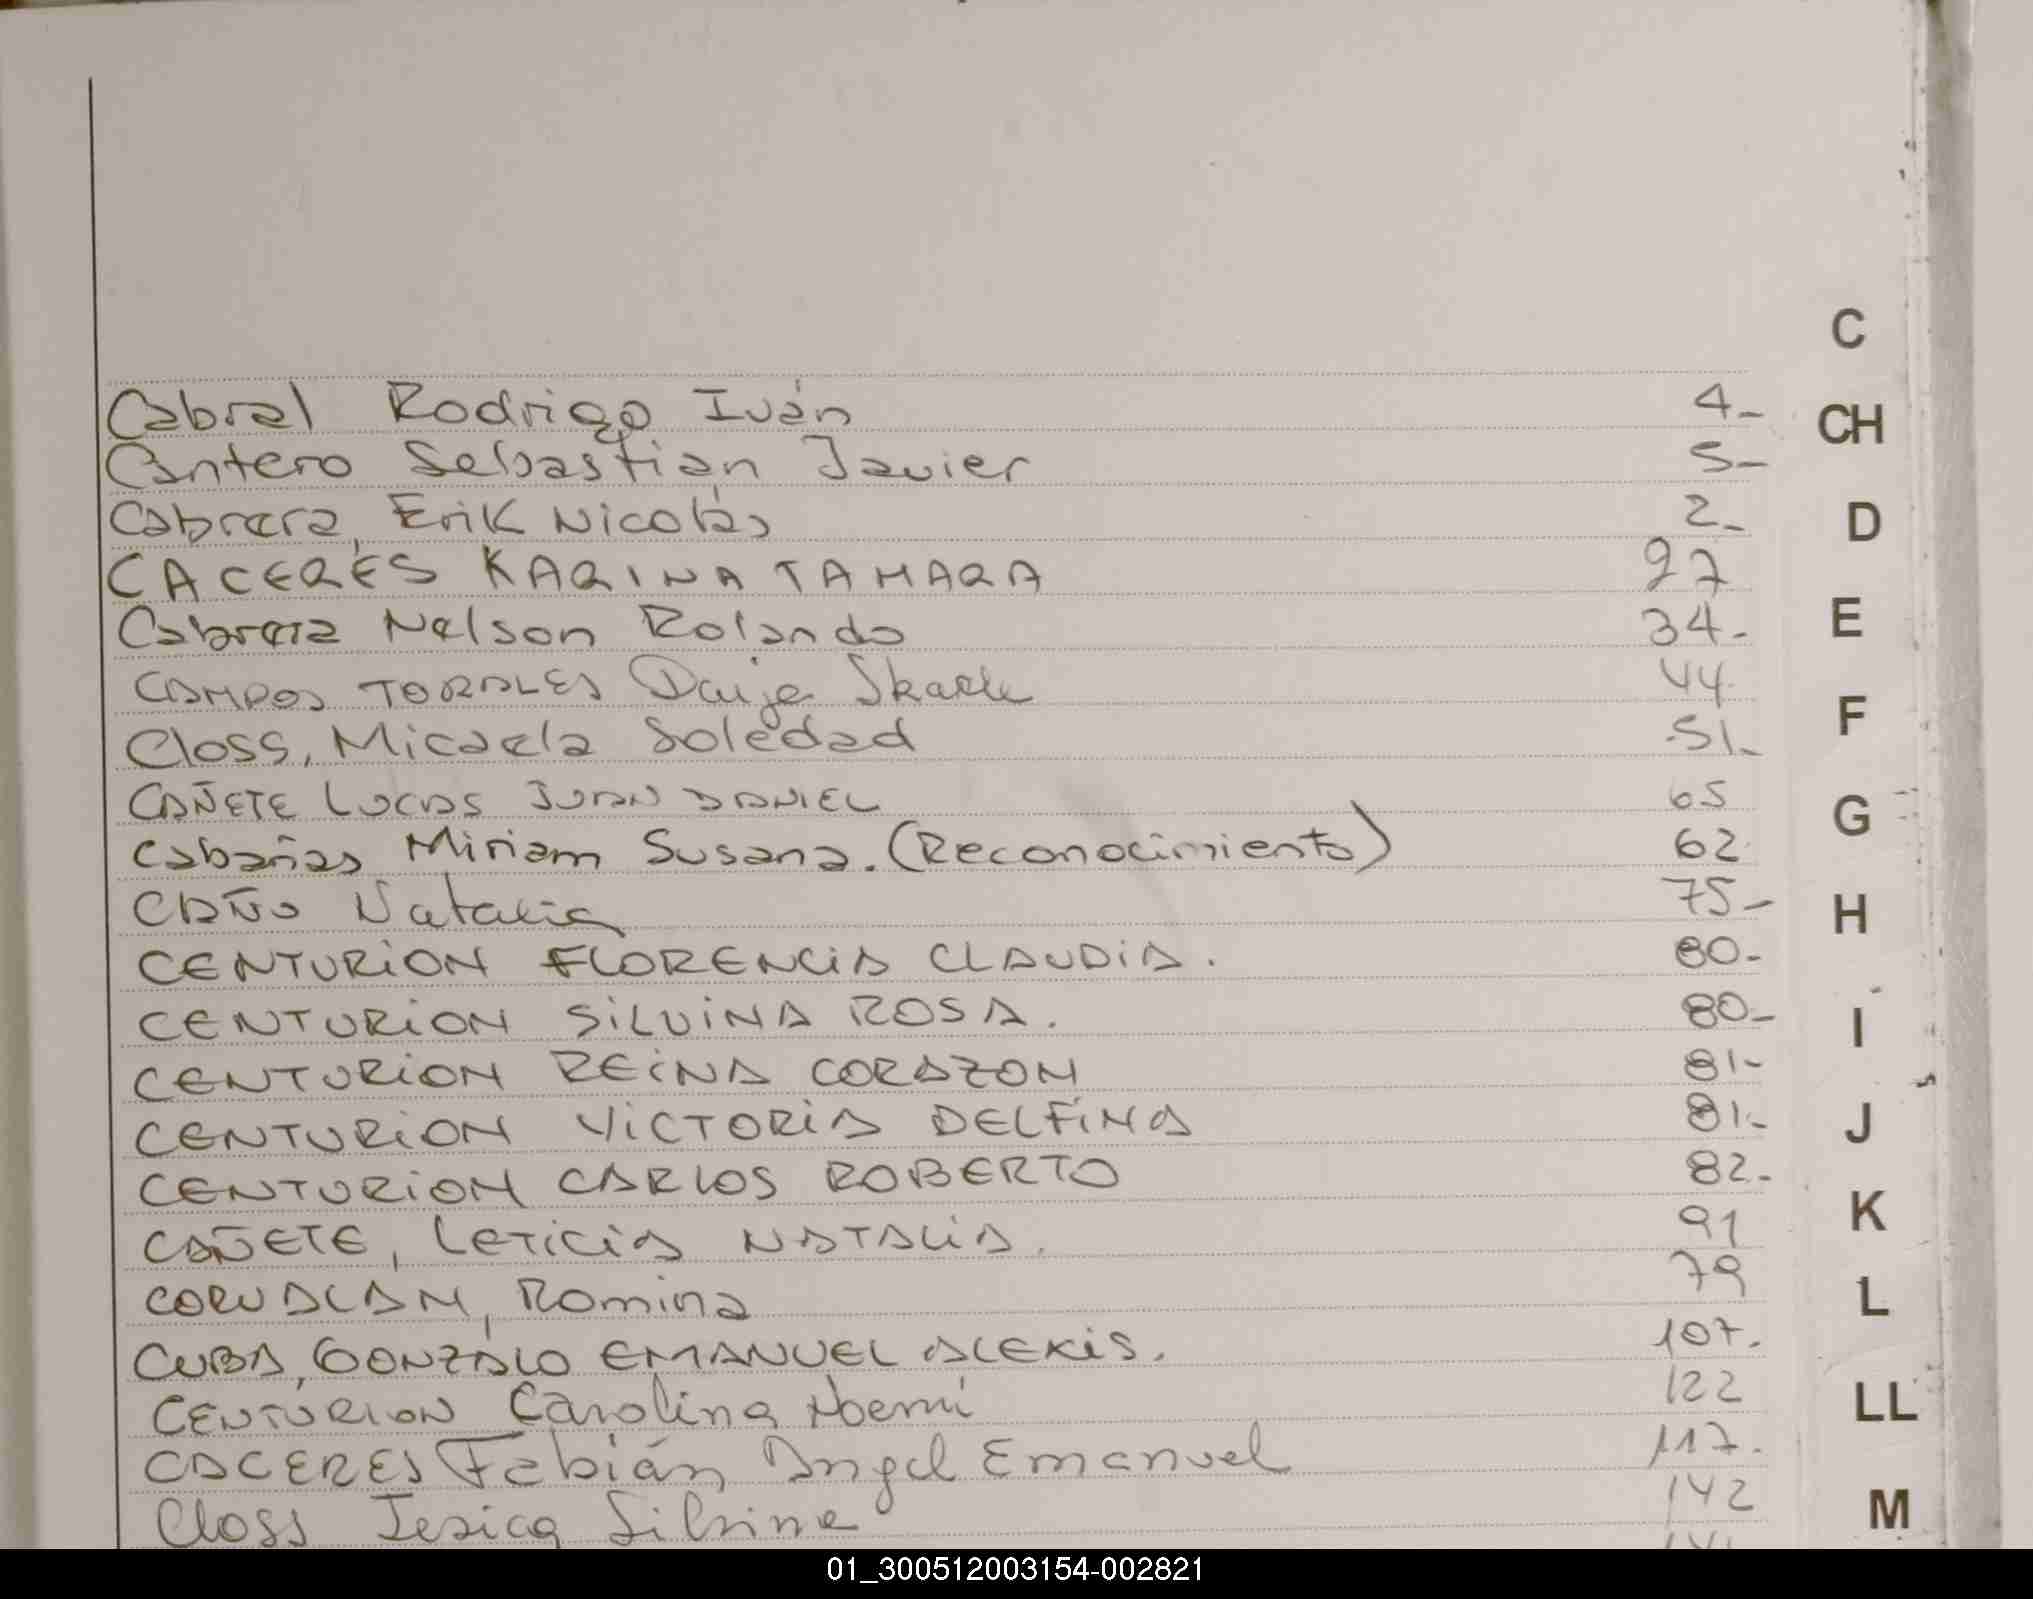 C
Cabral Rodrigo Iván 4-
CH
Cantero Sebastian Javier 5-
Cabrera, Erik Nicolás 2-
D
CACERES KARINA TAMARA 27
Cabrera Nelson Rolando 34-
E
CAMPOS TORALES 44
Closs, Micaela Soledad 51-
F
CAÑETE LUCAS JUAN DANIEL 65
G
Cabañas Miriam Susana. (Reconocimiento) 62
CAÑO Natalia 75-
H
CENTURiON FLORENCIA CLAUDiA. 80-
CENTURiON SiLViNA ROSA. 80-
I
CENTURiON REiNA CORAZON 81-
CENTURiON ViCTORiA DELFiNA 81-
J
CENTURiON CARLOS ROBERTO 82-
CAÑETE, LETiCiA NATALiA. 91
K
CORVALAN, Romina 79
L
CUBA, GONZALO EMANUEL ALEXiS. 107.
CENTURION Carolina Noemí 122
LL
CACERES Fabián Angel Emanuel 117.
Closs Jesica Silvina 142
M
01_300512003154-002821